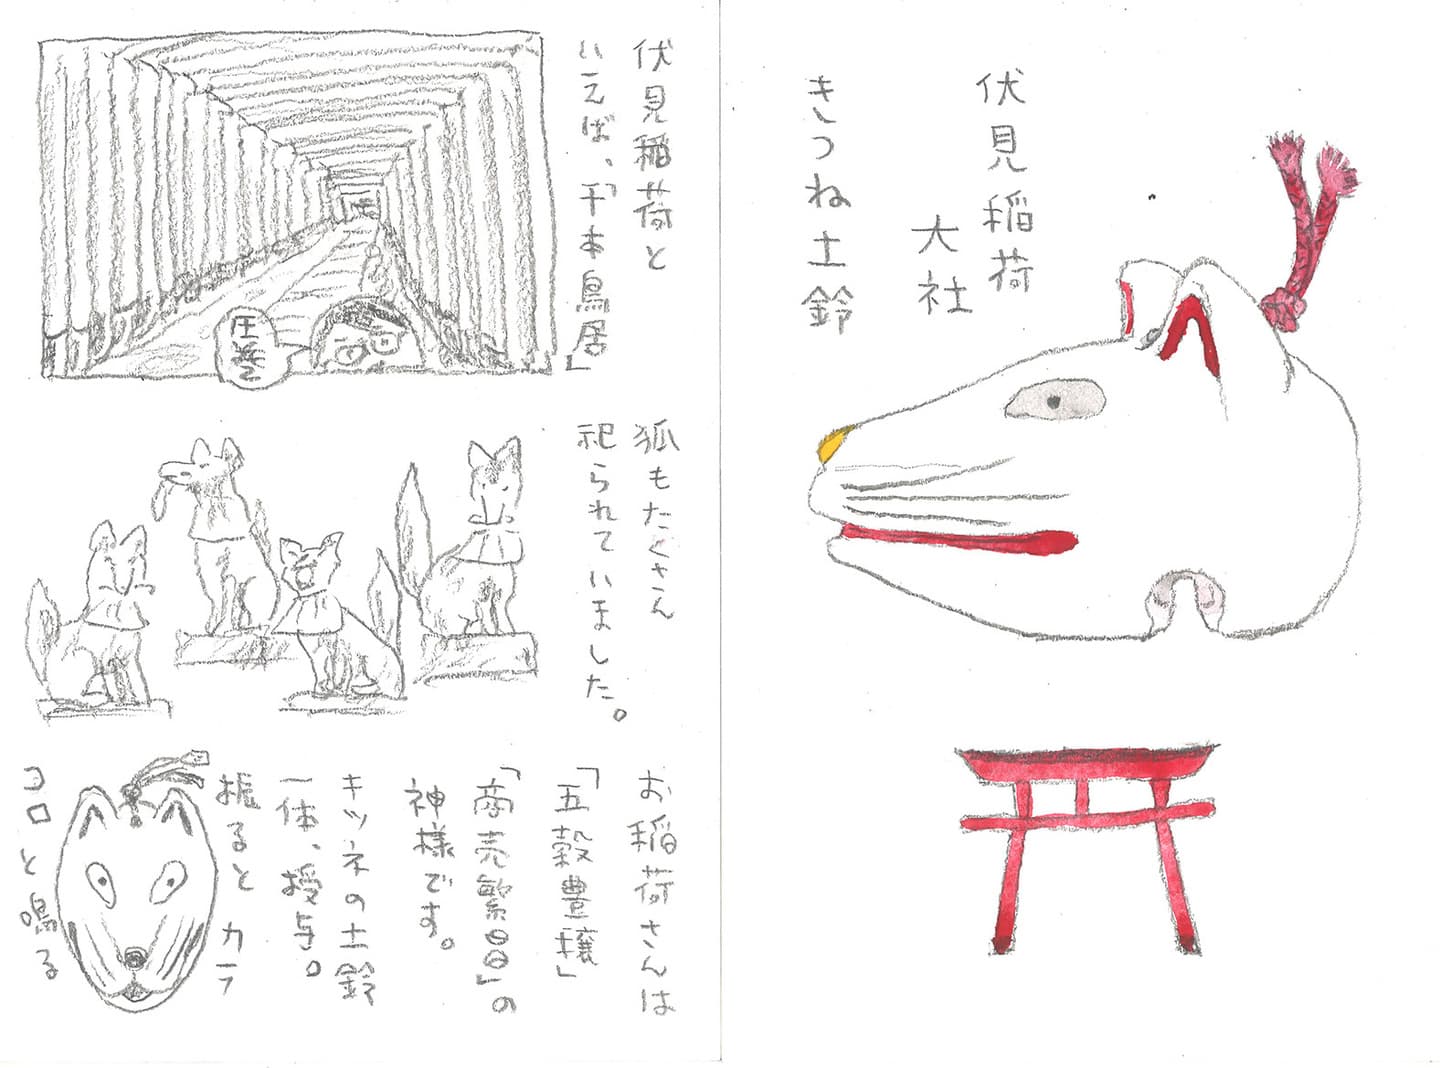 伏見稲荷
大社
きつね土鈴
伏見稲荷と
いえば、「千本鳥居」
圧巻
狐もたくさん
祀られていました。
お稲荷さんは
「五穀豊穣」
「商売繁昌」の
神様です。
キツネの土鈴
一体、授与。
振ると カラ
コロと鳴る